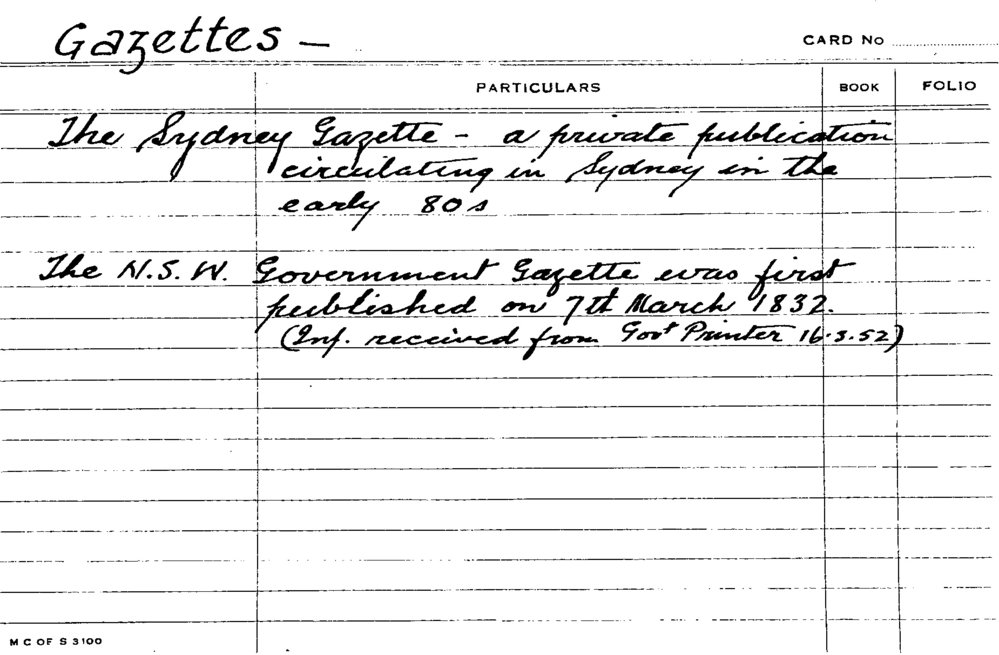 Gazettes —
CARD No
PARTICULARS BOOK FOLIO
The Sydney Gazette - a private publication
circulating in Sydney in the
early 80s
The N.S.W. Government Gazette was first
published on 7th March 1832.
(Inf. received from Govt Printer 16.3.52)
M C OF S 3100